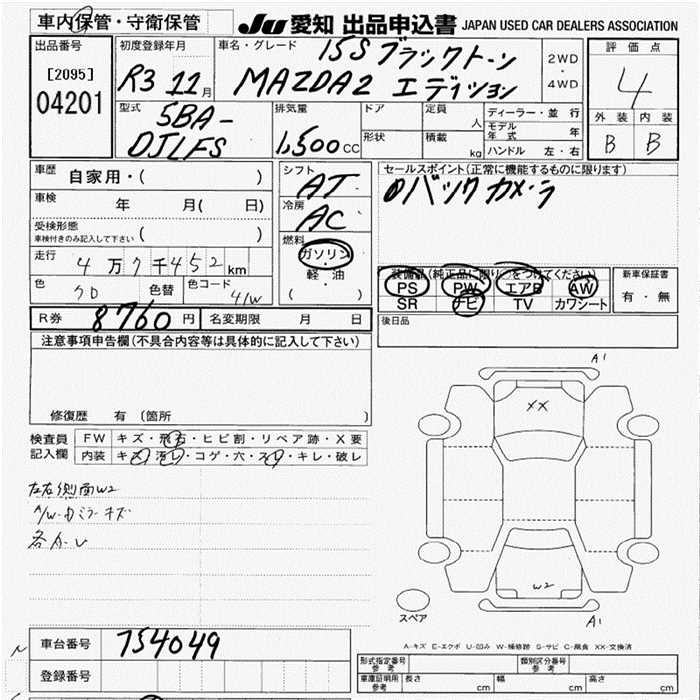 車内保管・守衛保管
JU 愛知 出品申込書 JAPAN USED CAR DEALERS ASSOCIATION
出品番号
[2095]
04201
初度登録年月
R3 11月
車名・グレード
15S ブラックトーン
MAZDA2 エディション
2WD
・
4WD
評価点
4
外装 内装
B B
型式
5BA-
DJLFS
排気量
1,500cc
ドア
形状
定員
人
積載
kg
ディーラー・並行
モデル年式 年
ハンドル 左・右
車歴
自家用・( )
車検
年 月( 日)
受検形態
車検付きのみ記入して下さい ( )
走行
4万7千452km
色
クロ
色替
色コード
41W
シフト
AT
冷房
AC
燃料
ガソリン
・
軽・油
( )
セールスポイント(正常に機能するものに限ります)
バックカメラ
装備品(純正品に限り○をつけてください)
PS PW エアB AW
SR ナビ TV カワシート
新車保証書
有・無
R券 8760円
名変期限 月 日
後日品
注意事項申告欄(不具合内容等は具体的に記入して下さい)
修復歴 有(箇所 )
検査員
記入欄
FW キズ・飛石・ヒビ割・リペア跡・X要
内装 キズ・汚レ・コゲ・穴・スレ・キレ・破レ
左右側面W2
A/W・ドミラーキズ
各A・U
A1
XX
W2
A1
スペア
A-キズ E-エクボ U-凹み W-補修跡 S-サビ C-腐食 XX-交換済
車台番号 754049
登録番号
形式指定番号 参考
類別区分番号 参考
車庫証明用 参考
長さ cm 幅 cm 高さ cm